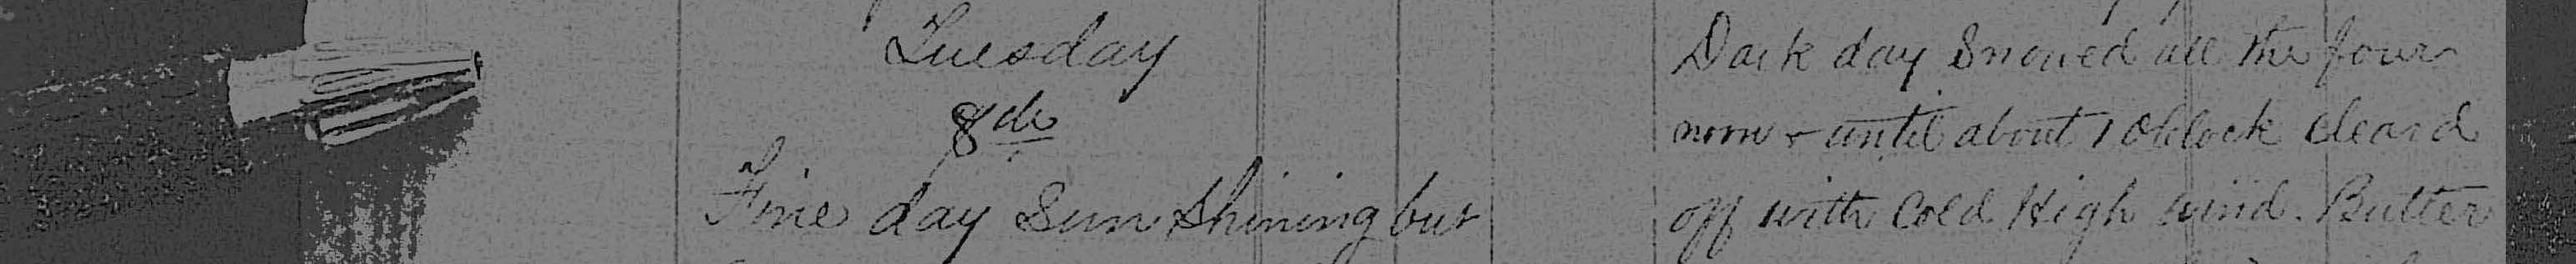 Tuesday
8th
Fine day Sun Shining but
Dark day Snowed all the four
noon + until about 1 Oblock cleard
off with Cold High wind. Butter